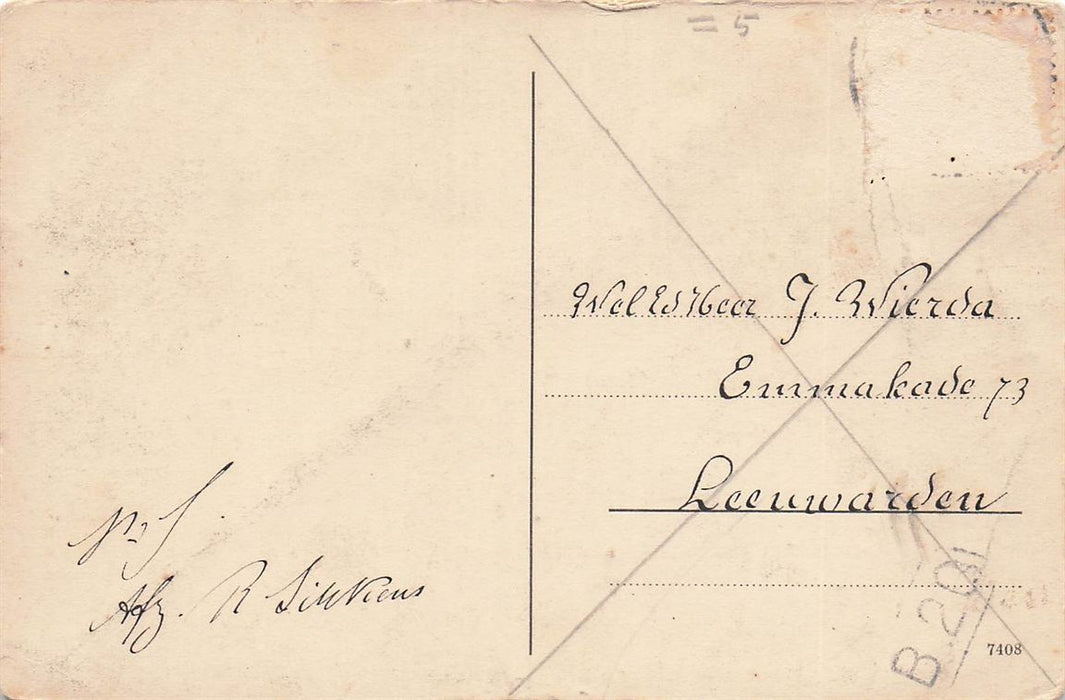 = 5
WelEdHeer J. Wierda
Emmakade 73
Leeuwarden
Afz. R Sikkens
B 20
7408